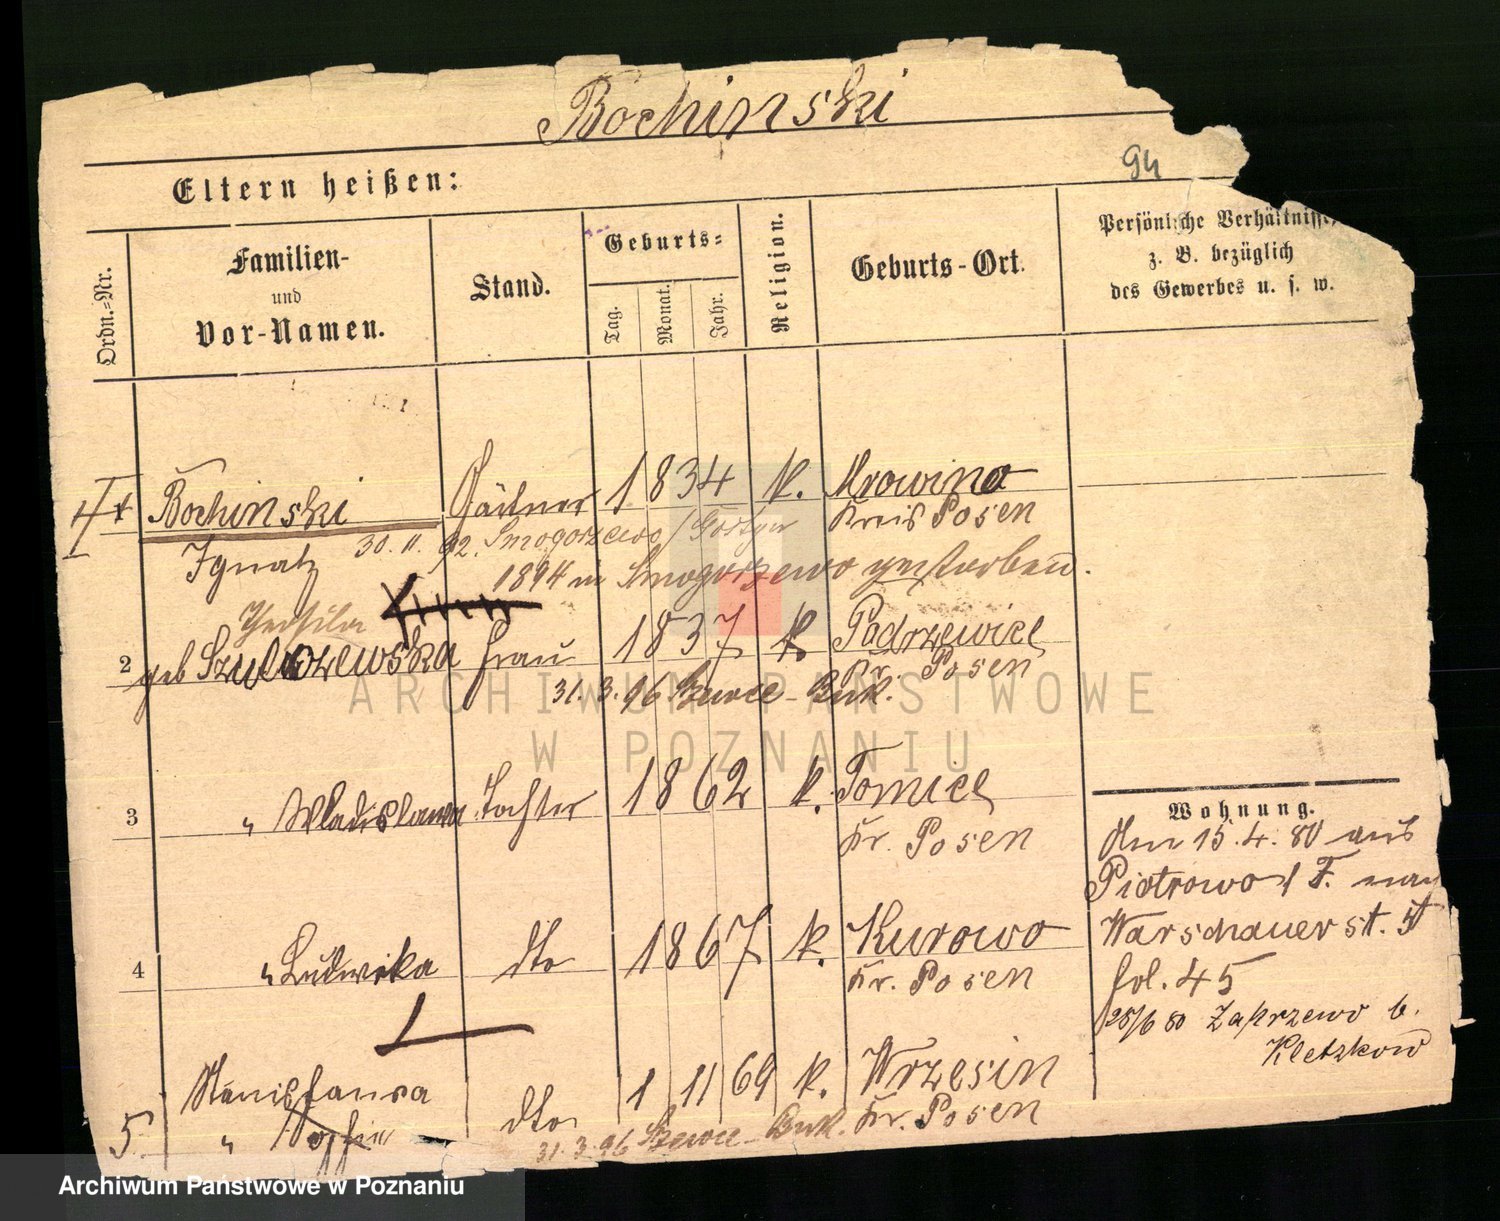 Bochinski
94
Eltern heißen:
Ordn.-Nr.
Familien-
und
Vor-Namen.
Stand.
Geburts-
Tag.
Monat.
Jahr.
Religion.
Geburts-Ort.
Persönliche Verhältnisse,
z. B. bezüglich
des Gewerbes u. s. w.
Bochinski Gärtner 1834 k. Mrowino
Kreis Posen
Ignatz 30. 11. 92. Smogorzewo / Gostyn
1894 in Smogorzewo gestorben.
2 geb Szulczewska Frau 1837 k Padrzewice
Kr. Posen
31. 3. 96. - Buk.
3 " Wladislawa Tochter 1862 k. Tomice
Kr. Posen
4 " Ludwika dto 1867 k. Kurowo
Kr. Posen
Stanislawa
5. " Soffie dto 1 11 69 k. Wrzesin
Kr. Posen
31. 3. 96 - Buk.
Wohnung.
Am 15. 4. 80 aus
Piotrowo
Warschauerst.
fol. 45
28/6 80 Zakrzewo b.
Kletzkow
ARCHIWUM PAŃSTWOWE
W POZNANIU
Archiwum Państwowe w Poznaniu